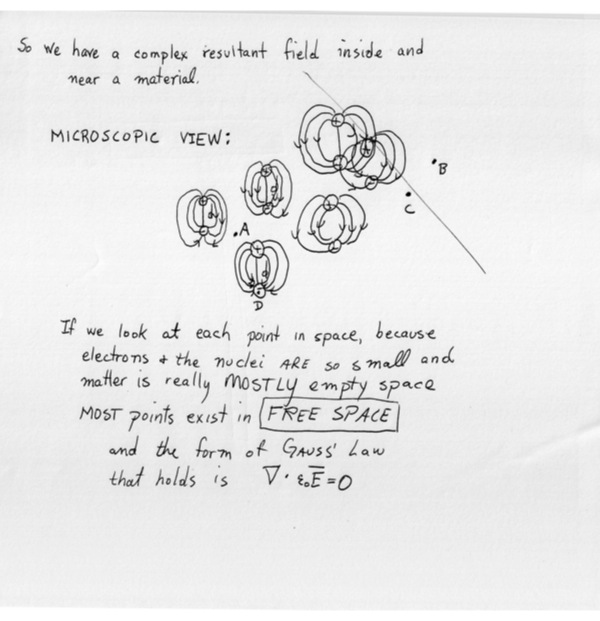 So we have a complex resultant field inside and
near a material.
MICROSCOPIC VIEW:
B
C
A
D
If we look at each point in space, because
electrons + the nuclei ARE so small and
matter is really MOSTLY empty space
MOST points exist in FREE SPACE
and the form of GAUSS' Law
that holds is ∇ · ε₀E̅ = 0